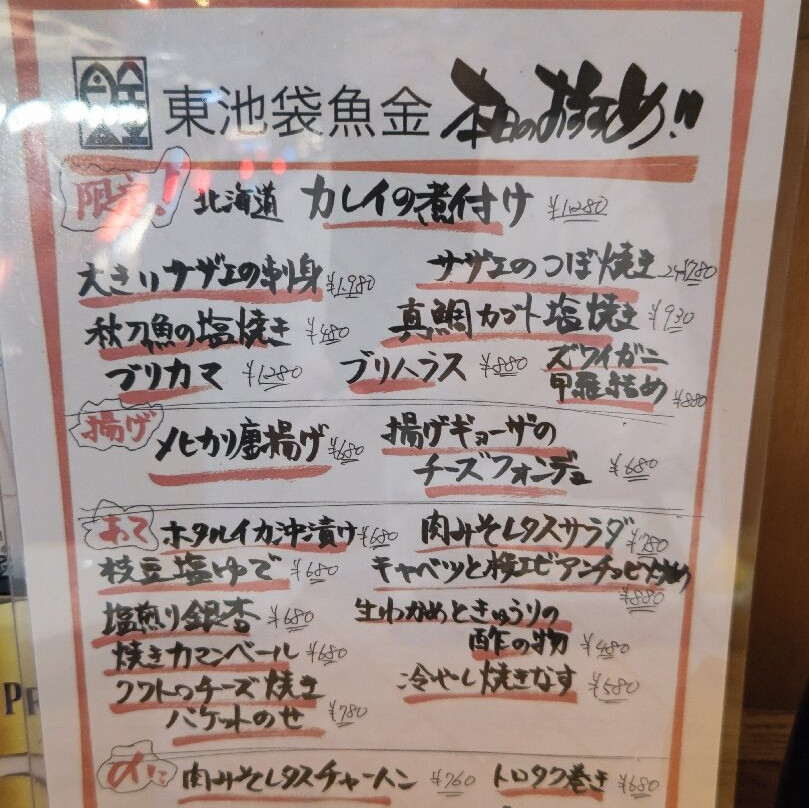 魚金 東池袋魚金 本日のおすすめ!!
限定! 北海道 カレイの煮付け ¥1280
大きりサザエの刺身 ¥1.980 サザエのつぼ焼き 2ケ¥780
秋刀魚の塩焼き ¥480 真鯛カブト塩焼き ¥930
ブリカマ ¥1280 ブリハラス ¥880 ズワイガニ
甲羅詰め ¥880
揚げ
メヒカリ唐揚げ ¥680 揚げギョーザの
チーズフォンデュ ¥680
あて ホタルイカ沖漬け ¥680 肉みそレタスサラダ ¥780
枝豆塩ゆで ¥680 キャベツと桜エビアンチョビ炒め
¥880
塩煎り銀杏 ¥680 生わかめときゅうりの
酢の物 ¥480
焼きカマンベール ¥680 冷やし焼きなす ¥580
クワトロチーズ焼き
バケットのせ ¥780
〆に 肉みそレタスチャーハン ¥760 トロタク巻き ¥680